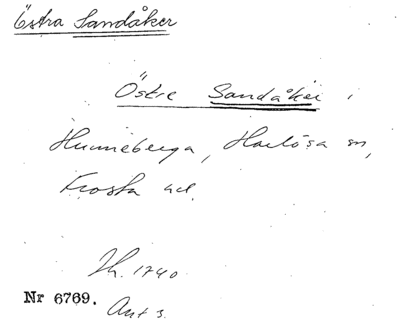 Östra Sandåker
Östre Sandåker,
Hunneberga, Harlösa sn,
Frosta hd.
Th. 1740
Nr 6769.
Ant s.